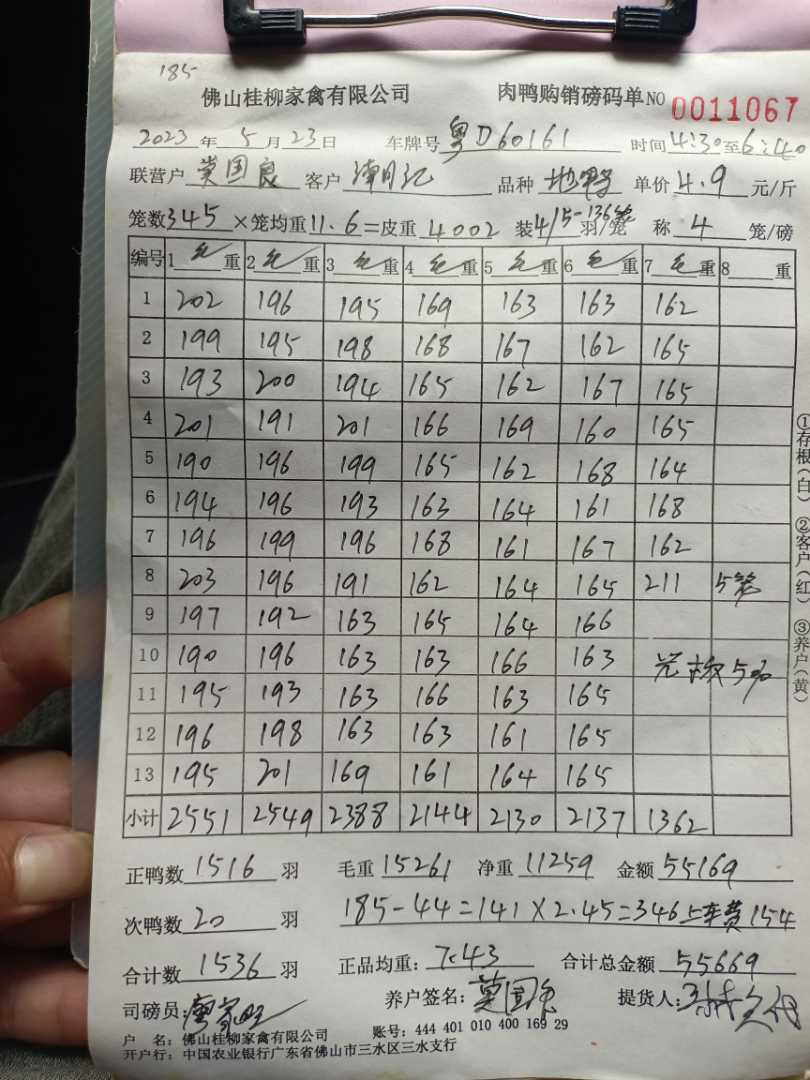 185
佛山桂柳家禽有限公司 肉鸭购销磅码单 NO 0011067
2023 年 5 月 23 日 车牌号 粤D60161 时间 4:30 至 6:40
联营户 国良 客户 品种 单价 4.9 元/斤
笼数 345 ×笼均重 11.6 =皮重 4002 装 4/5-136笼 羽/笼 称 4 笼/磅
编号 1 毛 重 2 毛 重 3 毛 重 4 毛 重 5 毛 重 6 毛 重 7 毛 重 8 重
1 202 196 195 169 163 163 162
2 199 195 198 168 167 162 165
3 193 200 194 165 162 167 165
4 201 191 201 166 169 160 165
5 190 196 199 165 162 168 164
6 194 196 193 163 164 161 168
7 196 199 196 168 161 167 162
8 203 196 191 162 164 165 211 5笼
9 197 192 163 165 164 166
10 190 196 163 163 166 163
11 195 193 163 166 163 165
12 196 198 163 163 161 165
13 195 201 169 161 164 165
小计 2551 2549 2388 2144 2130 2137 1362
正鸭数 1516 羽 毛重 15261 净重 11259 金额 55169
次鸭数 20 羽 185-44=141×2.45=346 上车费154
合计数 1536 羽 正品均重: 7.43 合计总金额 55669
司磅员: 养户签名: 提货人:
户 名: 佛山桂柳家禽有限公司 账号: 444 401 010 400 169 29
开户行: 中国农业银行广东省佛山市三水区三水支行
①存根(白) ②客户(红) ③养户(黄)